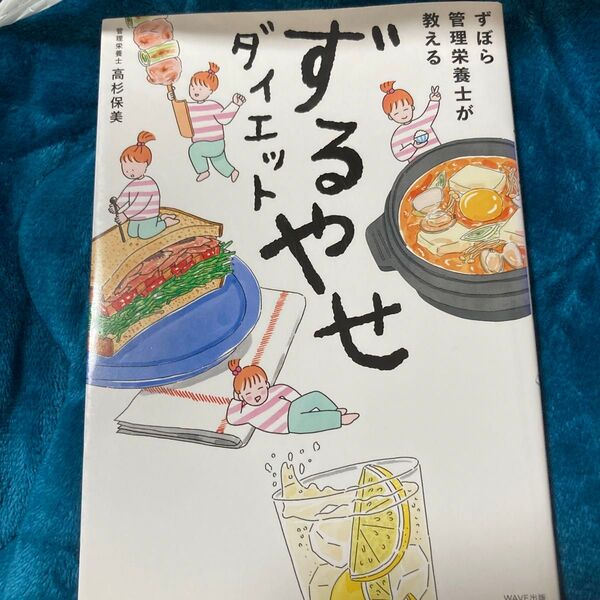 ずぼら
管理栄養士が
教える
ずるやせ
ダイエット
管理栄養士 高杉保美
WAVE出版